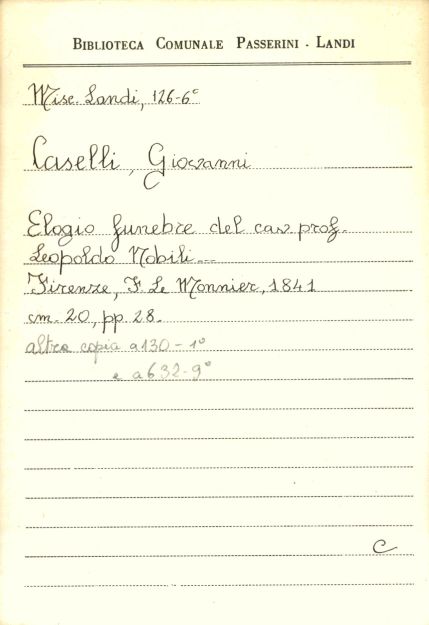 BIBLIOTECA COMUNALE PASSERINI - LANDI
Misc. Landi, 126-6°
Caselli, Giovanni
Elogio funebre del cav. prof.
Leopoldo Nobili...
Firenze, F. Le Monnier, 1841
cm. 20, pp 28.
altra copia a 130 - 1°
e a 632-9°
C